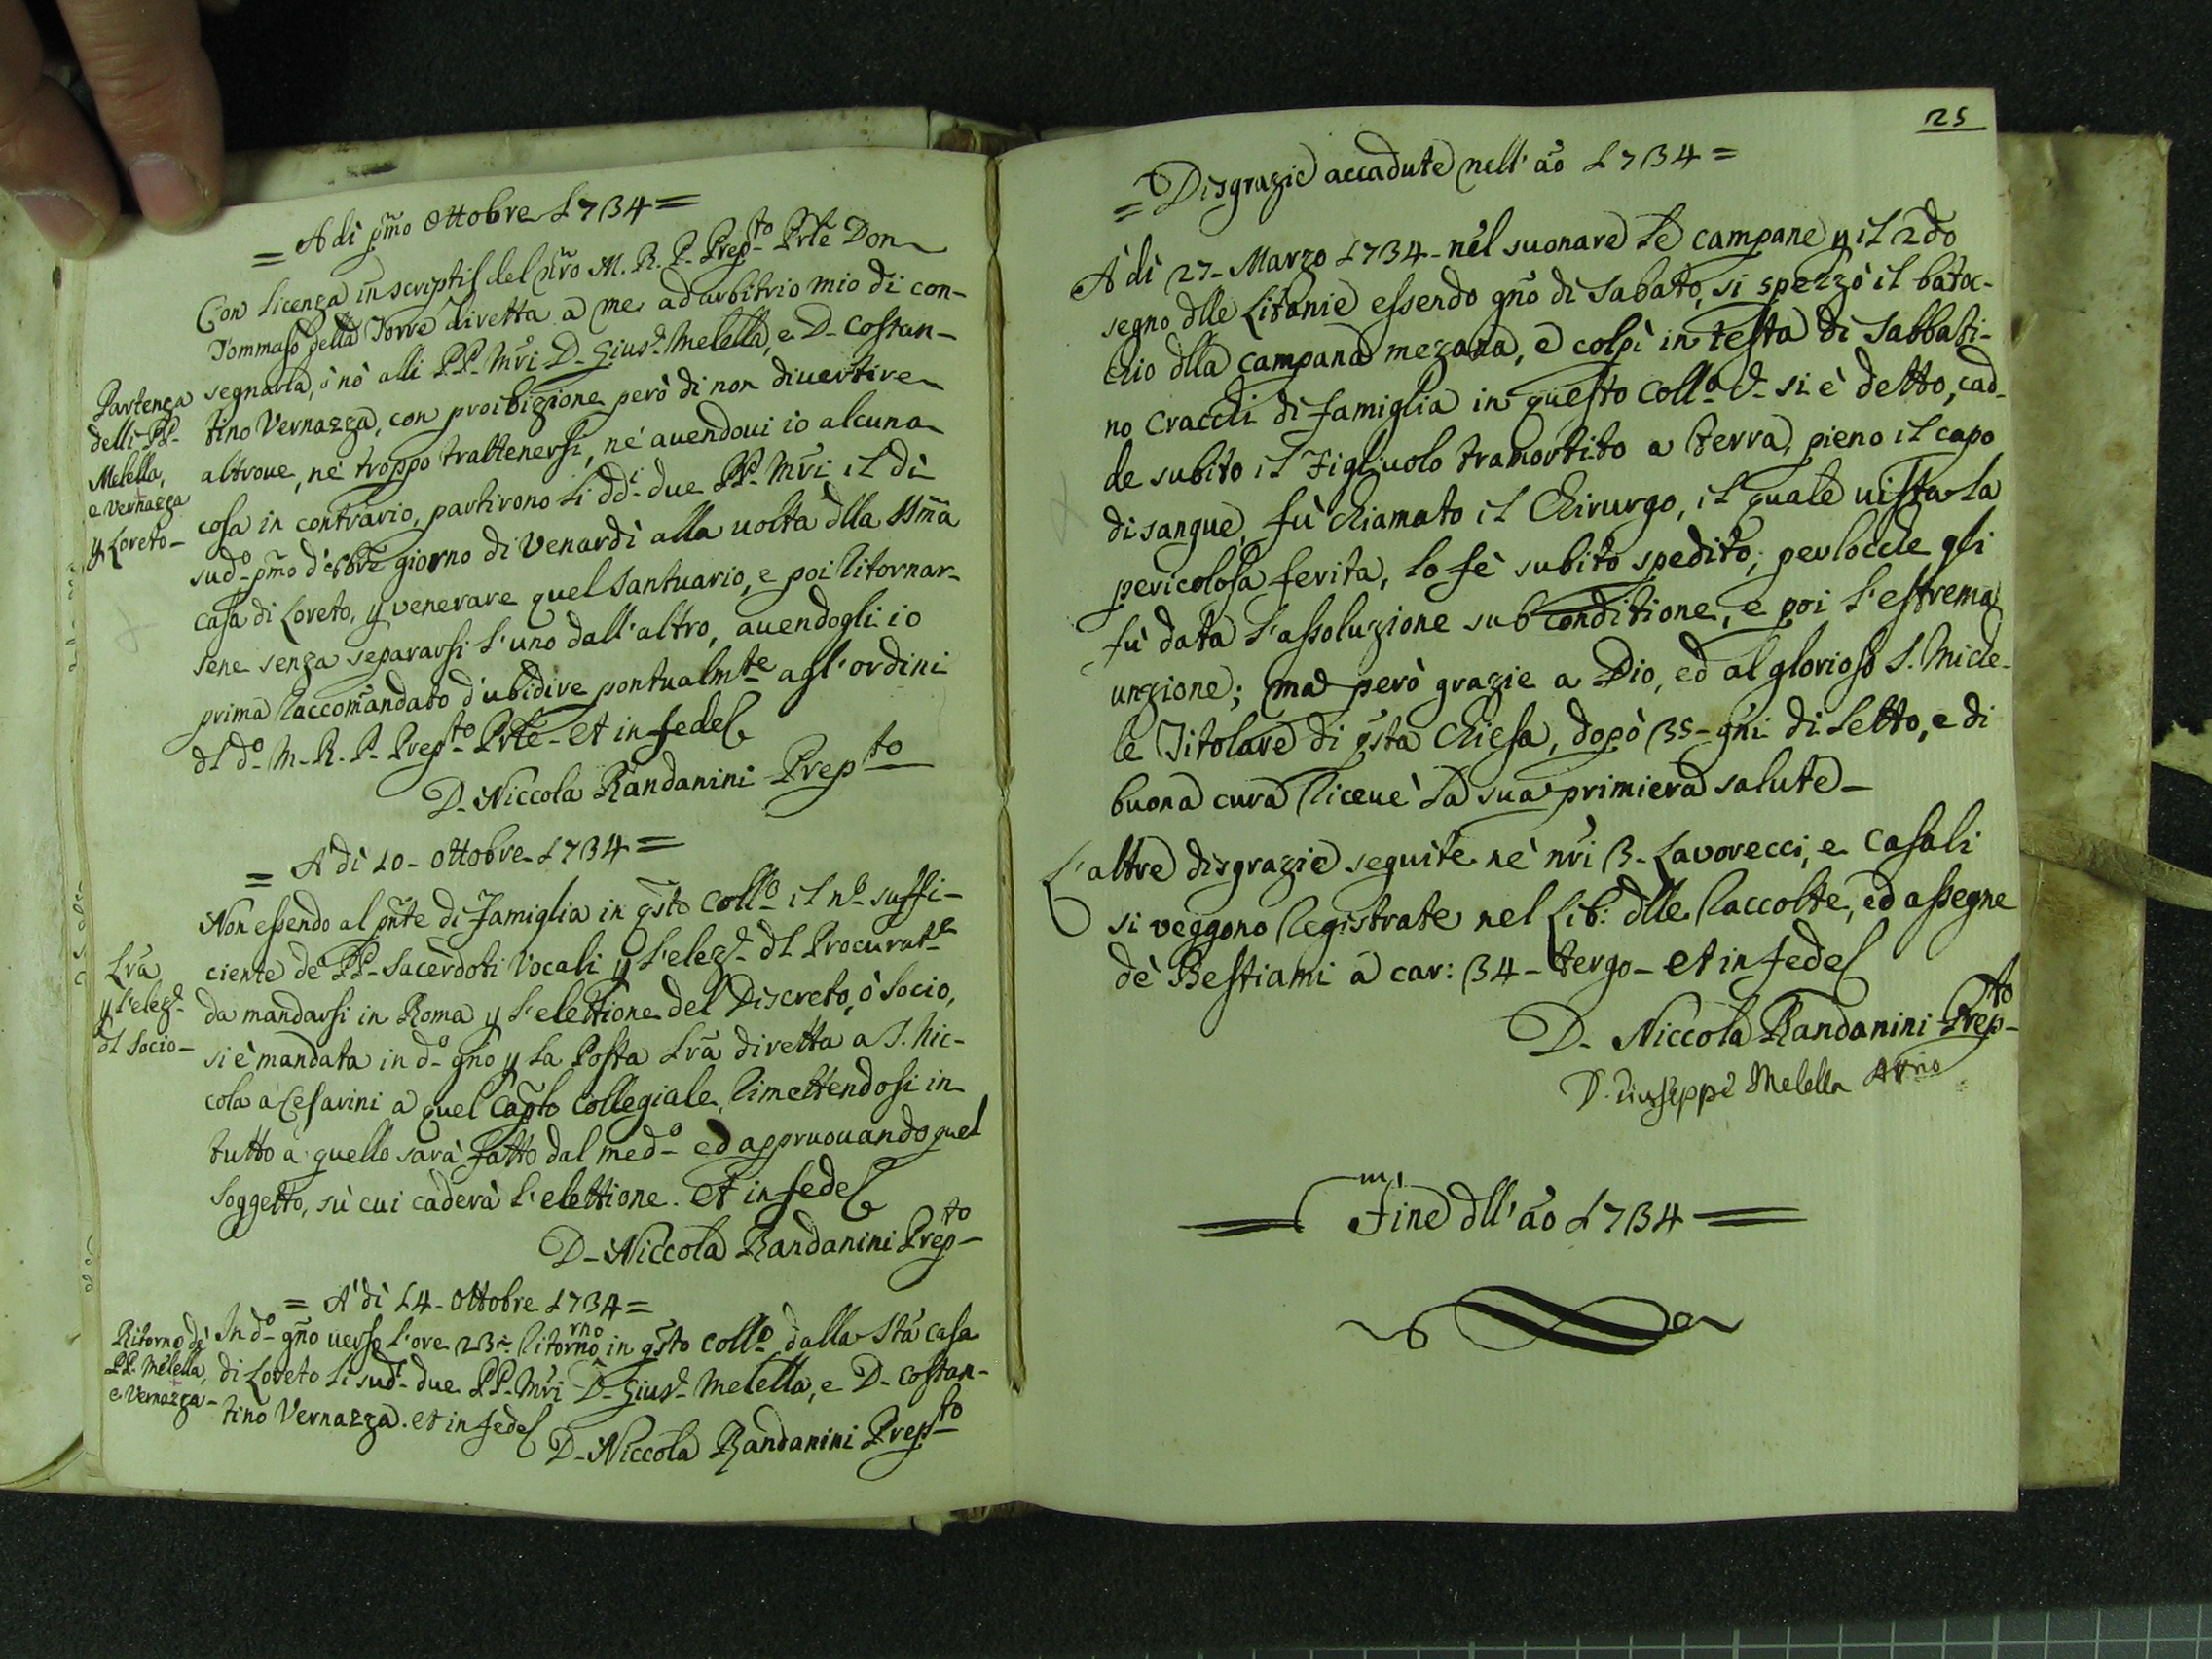 = A dì pmo Ottobre 1734 =
Con licenza in scriptis del nro M. R. P. Prepto Prle Don
Tommaso della Torre diretta a me ad arbitrio mio di con-
segnarla, ò nò alli PP. Mri D. Gius.e Melella, e D. Costan-
tino Vernazza, con proibizione però di non divertire
altrove, nè troppo trattenersi, nè avendovi io alcuna
cosa in contrario, partirono li ddi due PP. Mri il dì
sudo pmo d'8bre giorno di Venardì alla volta dlla SSma
Casa di Loreto, p venerare quel Santuario, e poi ritornar-
sene senza separarsi l'uno dall'altro, avendogli io
prima raccomandato d'ubidire pontualmte agl'ordini
dl do M. R. P. Prepto Prle et in fede
D. Niccola Randanini Prepto
Partenza
delli PP.
Melella,
e Vernazza
p Loreto
= A' dì 10 - Ottobre 1734 =
Non essendo al pnte di Famiglia in qsto Collo il no suffi-
ciente de PP. Sacerdoti Vocali p l'elez.e dl Procurate
da mandarsi in Roma p l'elettione del Discreto, ò Socio,
si è mandata in do gno p la Posta Lra diretta a S. Nic-
cola a' Cesarini a quel Caplo Collegiale, rimettendosi in
tutto a quello sarà fatto dal medo ed appruovando quel
Soggetto, sù cui caderà l'elettione. Et in fede
D. Niccola Randanini Prepto
Lra
p l'elez.e
dl Socio
= A' dì 14 - Ottobre 1734 =
In do gno verso l'ore 23: ritorno rno in qsto Collo dalla Sta Casa
di Loreto li sudi due PP. Mri D. Gius.e Melella, e D. Costan-
tino Vernazza. et in fede
D. Niccola Randanini Prepto
Ritorno de'
PP. Melella,
e Vernazza
25
= Disgrazie accadute nell' ao 1734 =
A' dì 27 - Marzo 1734 - nel suonare le campane p il 2do
segno dlle Litanie essendo gno di Sabato, si spezzò il batoc-
chio dlla campana mezana, e colpì in testa di Sabbasti-
no Cracchi di famiglia in questo Collo e si è detto, cad-
de subito il Figliuolo tramortito a terra, pieno il capo
di sangue, fù chiamato il Chirurgo, il quale vista la
pericolosa ferita, lo fè subito spedito; perlocche gli
fù data l'assoluzione sub conditione, e poi l'estrema
unzione; ma però grazie a Dio, ed al glorioso S. Miche-
le Titolare di qsta Chiesa, dopò 35 - gni di Letto, e di
buona cura riceuè la sua primiera salute
L'altre disgrazie seguite ne' nri 3. Lavorecci, e Casali
si veggono registrate nel Lib: dlle Raccolte, ed assegne
de' Bestiami a car: 34 - tergo - et in fede
D. Niccola Randanini Prepto
D. Giuseppe Melella Attrio
Fine dll' ao 1734